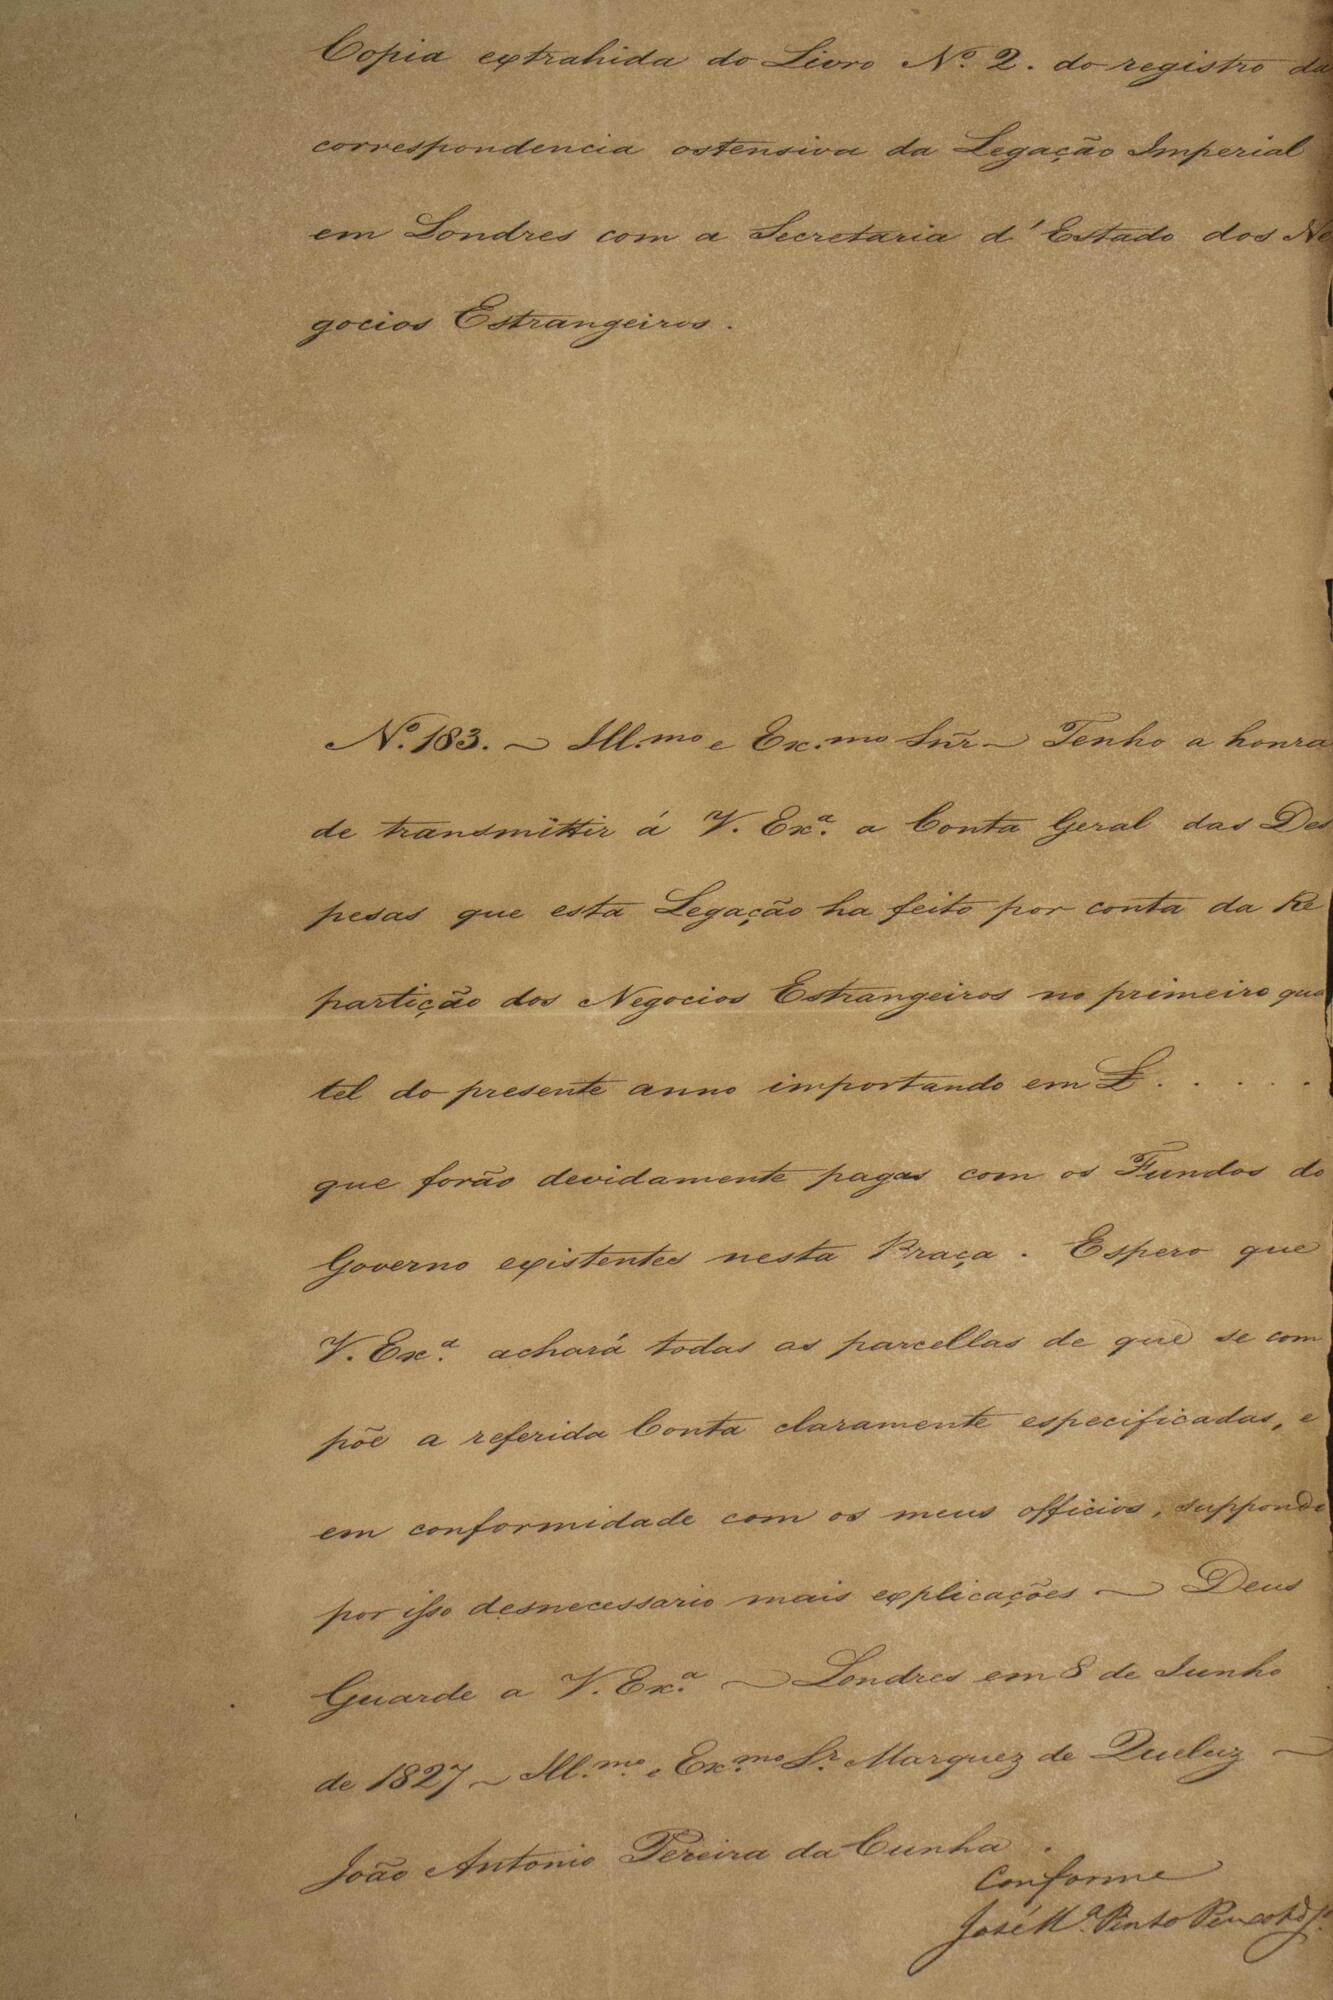 Copia extrahida do Livro Nº. 2. do registro da
correspondencia ostensiva da Legação Imperial
em Londres com a Secretaria d'Estado dos Ne
gocios Estrangeiros.
Nº. 183. ~ Ill.mo e Ex.mo Snr̃ ~ Tenho a honra
de transmittir á V. Exª. a Conta Geral das Des
pesas que esta Legação ha feito por conta da Re
partição dos Negocios Estrangeiros no primeiro qua
tel do presente anno importando em £ . . . . .
que forão devidamente pagas com os Fundos do
Governo existentes nesta Praça. Espero que
V. Exª. achará todas as parcellas de que se com
põe a referida Conta claramente especificadas, e
em conformidade com os meus officios, suppondo
por isso desnecessario mais explicações ~ Deus
Guarde a V. Exª. ~ Londres em 8 de Junho
de 1827 ~ Ill.mo. e Ex.mo Sr. Marquez de Queluz ~
João Antonio Pereira da Cunha.
Conforme
José Mª. Pinto